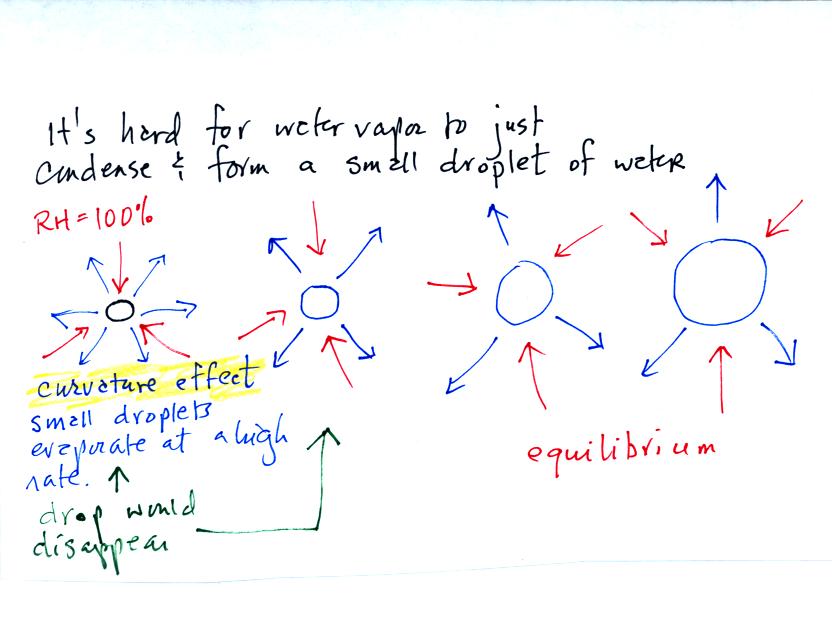 It's hard for water vapor to just
condense & form a small droplet of water
RH = 100%
curvature effect
small droplets
evaporate at a high
rate.
drop would
disappear
equilibrium